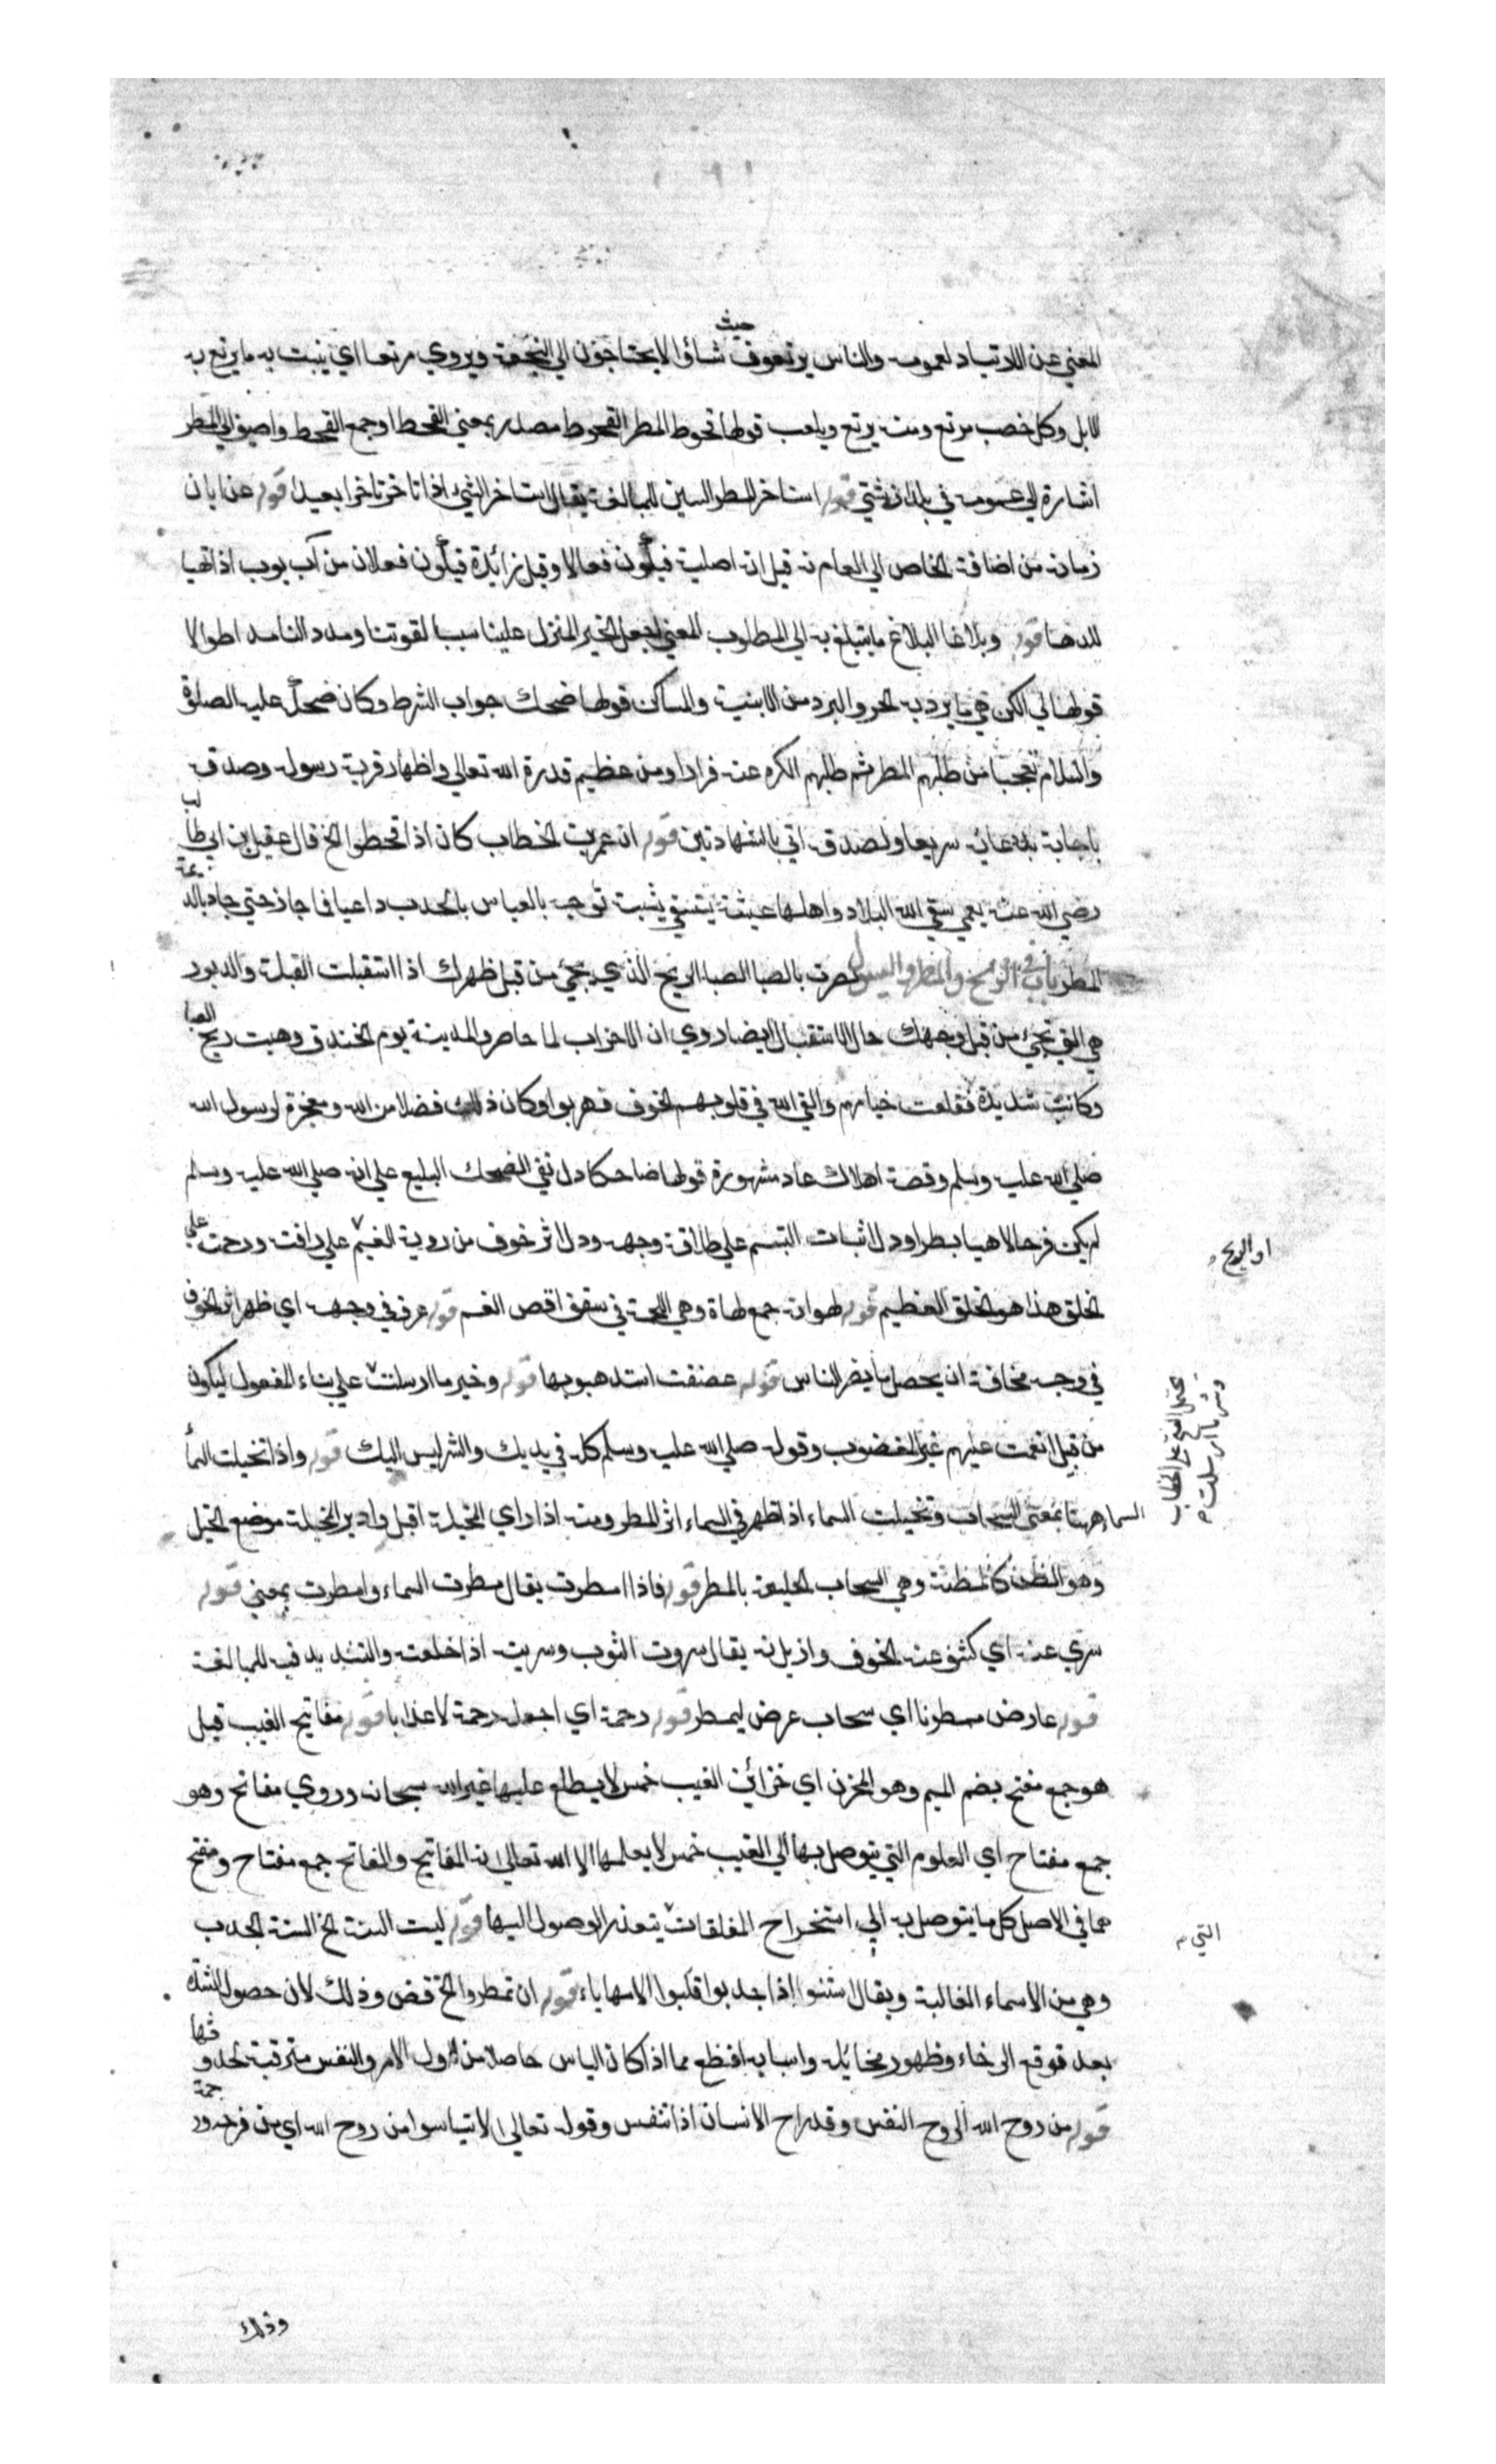 المغني عن الارتياد لعمومه والناس يرتعون حيث شاؤا لا يحتاجون الي النجعة ويروي مرتعا اي ينبت به ما يرتع به
الابل وكل خصب مرتع ومنه يرتع ويلعب قولها قحوط المطر القحوط مصدر بمعني القحط او جمع القحط واضيف الي المطر
اشارة الي عمومه في بلدان شتي قوله استاخر المطر السين للمبالغة يقال استاخر الشيء اذا تاخر تاخرا بعيدا قوله عن ابان
زمانه من اضافة الخاص الي العام نه قيل انه اصلية فيكون فعالا وقيل زائدة فيكون فعلان من آب يوب اذا تهيا
للذهاب قوله وبلاغا البلاغ ما يتبلغ به الي المطلوب المعني اجعل الخير المنزل علينا سببا لقوتنا ومددا لنا مددا طوالا
قولها الي الكن هي ما يرد به الحر والبرد من الابنية والمساكن قولها ضحك جواب الشرط وكان ضحكه عليه الصلاة
والسلام تعجبا من طلبهم المطر ثم طلبهم الكره عنه فرارا ومن عظيم قدرة الله تعالي واظهار قربة رسوله وصدقه
باجابة دعائه سريعا ولصدقه اتي بالشهادتين قوله ان عمر بن الخطاب كان اذا قحطوا الخ قال عقيل بن ابي طالب
رضي الله عنه بعمي سقي الله البلاد واهلها عشية يستسقي بشيبته عمر توجه بالعباس بالجدب داعيا فما جاز حتي جاد بالديمة
المطر باب في الريح والمطر قوله نصرت بالصبا الصبا الريح الذي يجيء من قبل ظهرك اذا استقبلت القبلة والدبور
هي التي تجيء من قبل وجهك حال الاستقبال ايضا روي ان الاحزاب لما حاصروا المدينة يوم الخندق وهبت ريح الصبا
وكانت شديدة فقلعت خيامهم والقي الله في قلوبهم الخوف فهربوا وكان ذلك فضلا من الله ومعجزة لرسول الله
صلي الله عليه وسلم وقصة اهلاك عاد مشهورة قولها ضاحكا دل نفي الضحك البليغ علي انه صلي الله عليه وسلم
لم يكن فرحا لاهيا بطرا ودل اثبات التبسم علي طلاقة وجهه ودل اثر خوفه من روية الغيم علي رافته ورحمته علي
او الريح
الخلق هذا هو الخلق العظيم قوله لهواته جمع لهاة وهي اللحمة في سقف اقصي الفم قوله عرف في وجهه اي ظهر اثر الخوف
في وجهه مخافة ان يحصل منه ما يضر الناس قوله عصفت اشتد هبوبها قوله وخير ما ارسلت علي بناء المفعول ليكون
يحتمل الفتح علي الخطاب
وشر ما ارسلت
من قبيل انعمت عليهم غير المغضوب وقوله صلي الله عليه وسلم كله في يديك والشر ليس اليك قوله واذا تخيلت السماء
السماء هنا بمعني السحاب وتخيلت السماء اذا ظهر في السماء اثر المطر ومنه اذا راي المخيلة اقبل وادبر المخيلة موضع الخيل
وهو الظن كالمظنة وهي السحاب الخليقة بالمطر قوله فاذا امطرت يقال مطرت السماء وامطرت بمعني قوله
سري عنه اي كشف عنه الخوف وازيل نه يقال سروت الثوب وسريته اذا خلعته والتشديد فيه للمبالغة
قوله عارض ممطرنا اي سحاب عرض ليمطر قوله رحمة اي اجعله رحمة لا عذابا قوله مفاتيح الغيب قيل
هو جمع مفتح بضم الميم وهو المخزن اي خزائن الغيب خمس لا يطلع عليها غير الله سبحانه وروي مفاتح وهو
جمع مفتاح اي العلوم التي يتوصل بها الي الغيب خمس لا يعلمها الا الله تعالي نه المفاتيح والمفاتح جمع مفتاح ومفتح
هما في الاصل كل ما يتوصل به الي استخراج المغلقات يتعذر الوصول اليها قوله ليست السنة الخ السنة الجدب
التي
وهي من الاسماء الغالبة ويقال سنتوا اذا جدبوا قلبوا لامها ياء قوله ان تمطروا الخ قض وذلك لان حصول الشدة
بعد توقع الرخاء وظهور مخائله واسبابه افظع مما اذا كان الياس حاصلا من اول الامر والنفس مترقبة لحدوثها
قوله من روح الله الروح النفس وقد راح الانسان اذا تنفس وقوله تعالي لا تياسوا من روح الله اي من فرجه ورحمته
وذلك